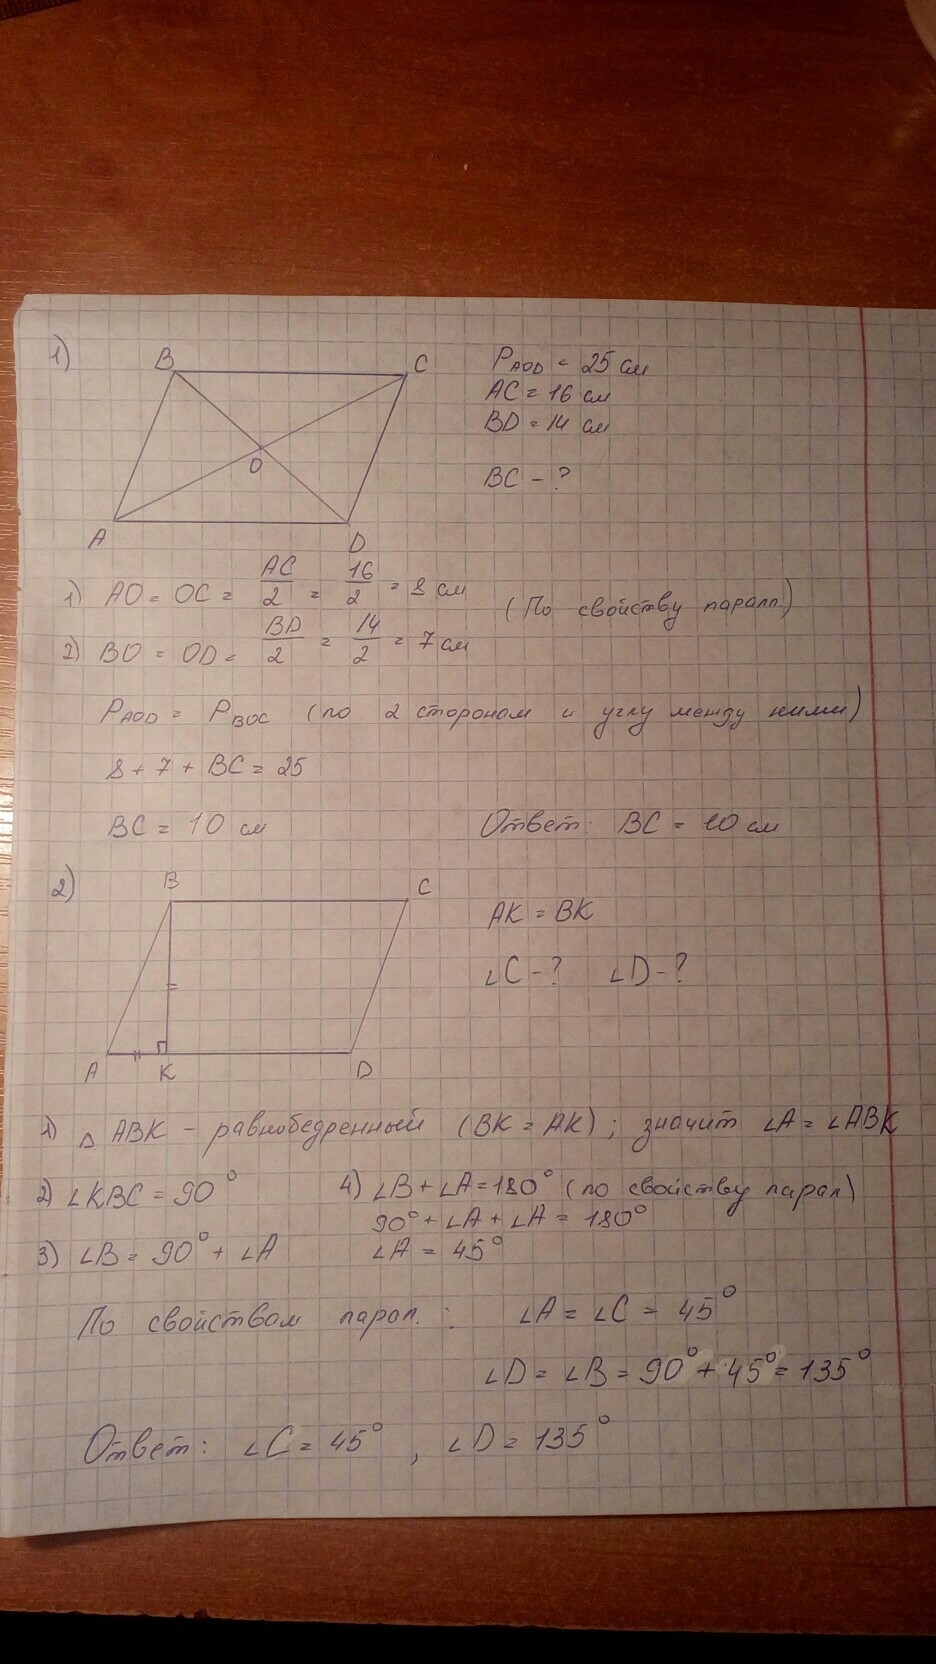 1)
B C
O
A D
P_AOD = 25 см
AC = 16 см
BD = 14 см
BC - ?
1) AO = OC = AC/2 = 16/2 = 8 см (По свойству паралл.)
2) BO = OD = BD/2 = 14/2 = 7 см
P_AOD = P_BOC (по 2 сторонам и углу между ними)
8 + 7 + BC = 25
BC = 10 см Ответ: BC = 10 см
2)
B C
A K D
AK = BK
∠C - ? ∠D - ?
1) △ ABK - равнобедренный (BK = AK); значит ∠A = ∠ABK
2) ∠KBC = 90°
3) ∠B = 90° + ∠A
4) ∠B + ∠A = 180° (по свойству парал)
90° + ∠A + ∠A = 180°
∠A = 45°
По свойствам парал. : ∠A = ∠C = 45°
∠D = ∠B = 90° + 45° = 135°
Ответ: ∠C = 45° , ∠D = 135°